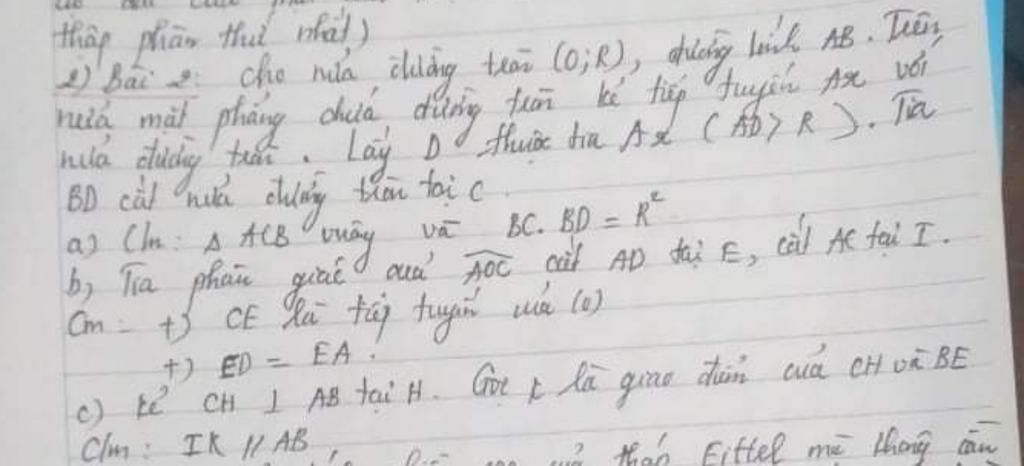 thập phân thứ nhất)
2) Bài 2: Cho nửa đường tròn (O;R), đường kính AB. Trên
nửa mặt phẳng chứa đường tròn kẻ tiếp tuyến Ax với
nửa đường tròn. Lấy D thuộc tia Ax (AD > R). Tia
BD cắt nửa đường tròn tại C.
a) C/m: Δ ACB vuông và BC. BD = R²
b) Tia phân giác của AOC cắt AD tại E, cắt AC tại I.
Cm: +) CE là tiếp tuyến của (O)
+) ED = EA.
c) Kẻ CH ⊥ AB tại H. Gọi K là giao điểm của CH và BE
C/m: IK // AB
tháp Eittel mà không cần